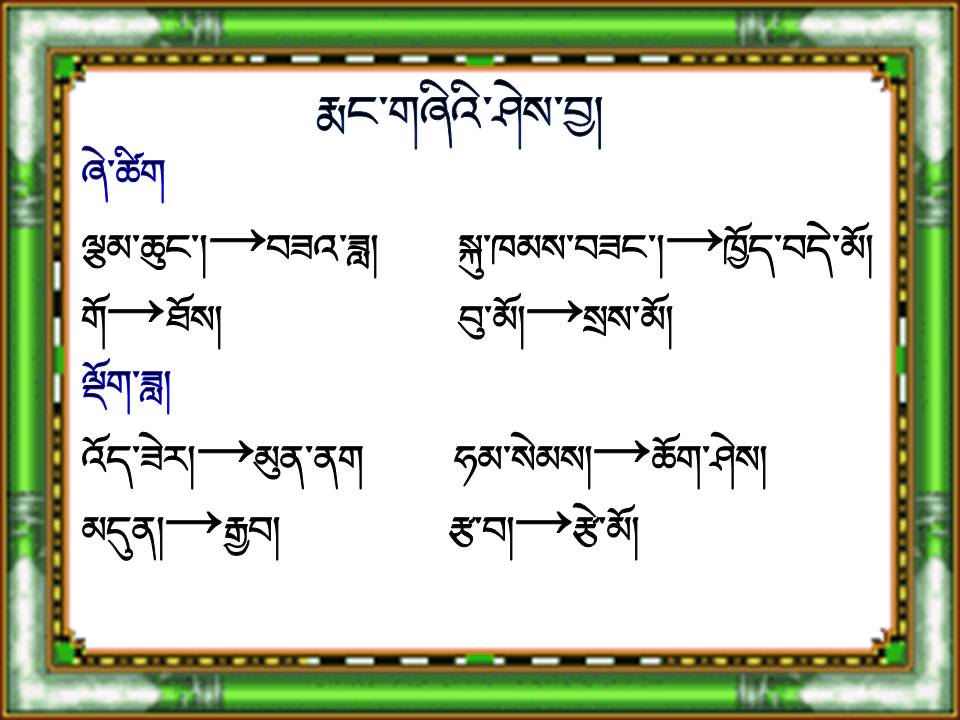 རྨང་གཞིའི་ཤེས་བྱ།
ཞེ་ཚིག
ལྕམ་ཆུང་།→བཟའ་ཟླ། སྐུ་ཁམས་བཟང་།→ཁྱོད་བདེ་མོ།
གོ→ཐོས། བུ་མོ།→སྲས་མོ།
ལྡོག་ཟླ།
འོད་ཟེར།→མུན་ནག ཧམ་སེམས།→ཆོག་ཤེས།
མདུན།→རྒྱབ། རྩ་བ།→རྩེ་མོ།